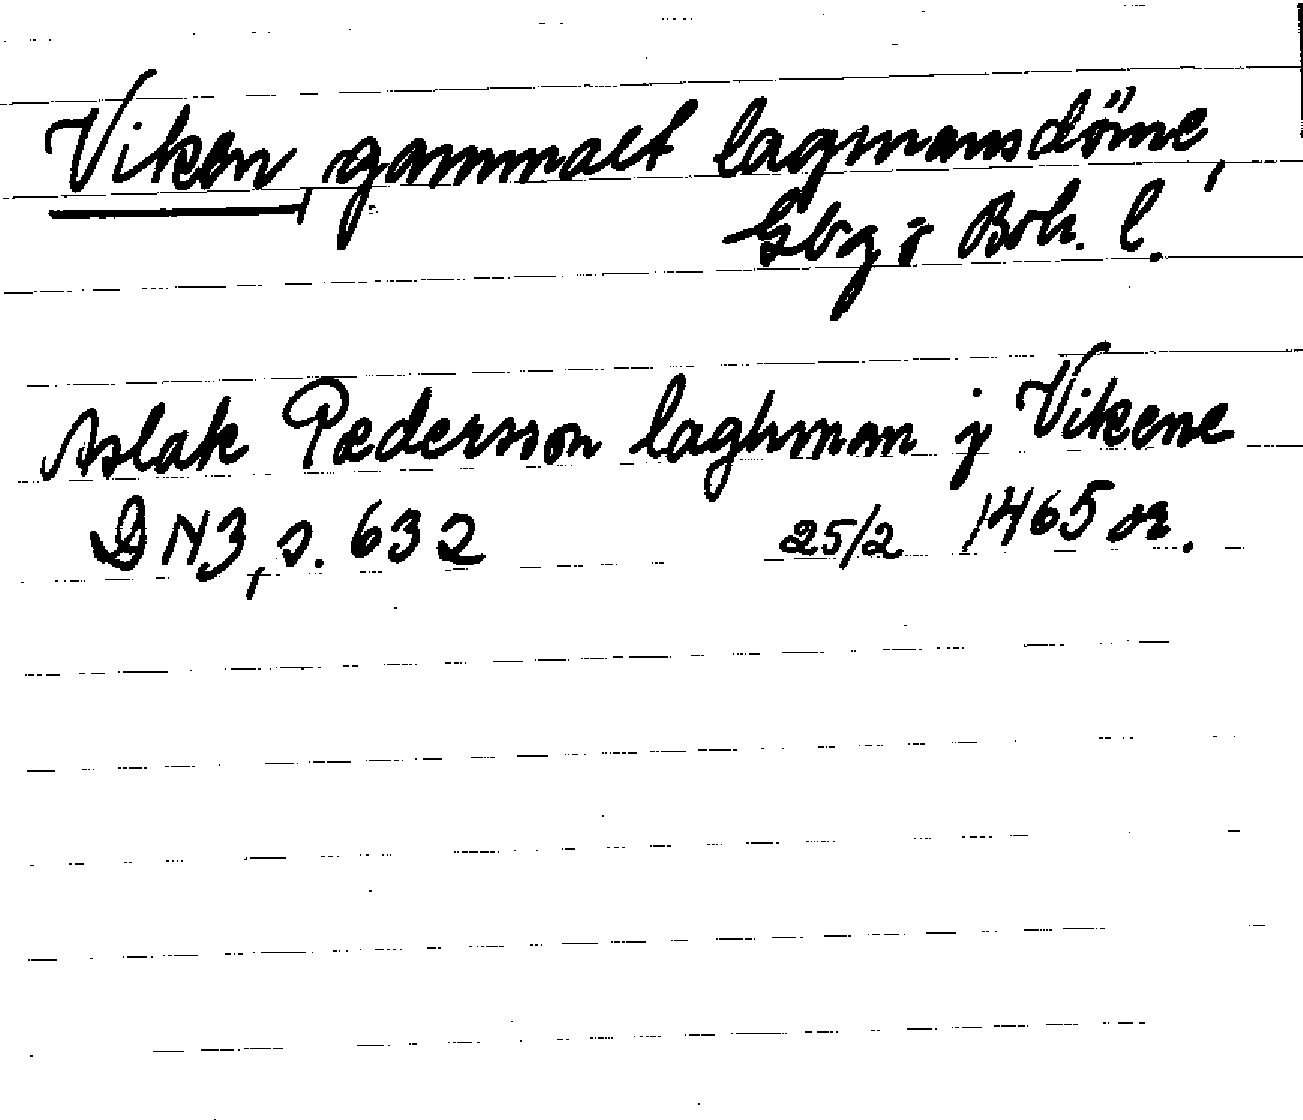 Viken, gammalt lagmansdöme,
Gbg o Boh. l.
Aslak Pædersson laghman j Vikene
DN3, s. 632 25/2 1465 or.